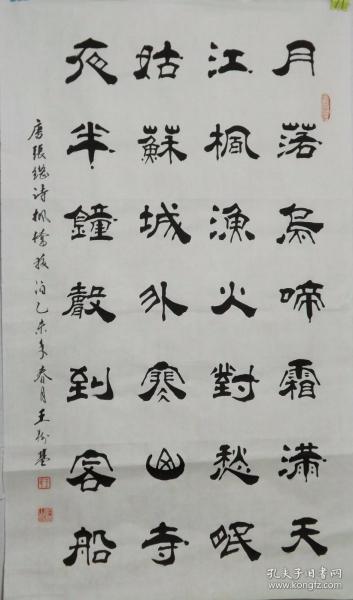 月落烏啼霜滿天
江楓漁火對愁眠
姑蘇城外寒山寺
夜半鐘聲到客船
唐張繼詩楓橋夜泊乙未年春月王
孔夫子旧书网